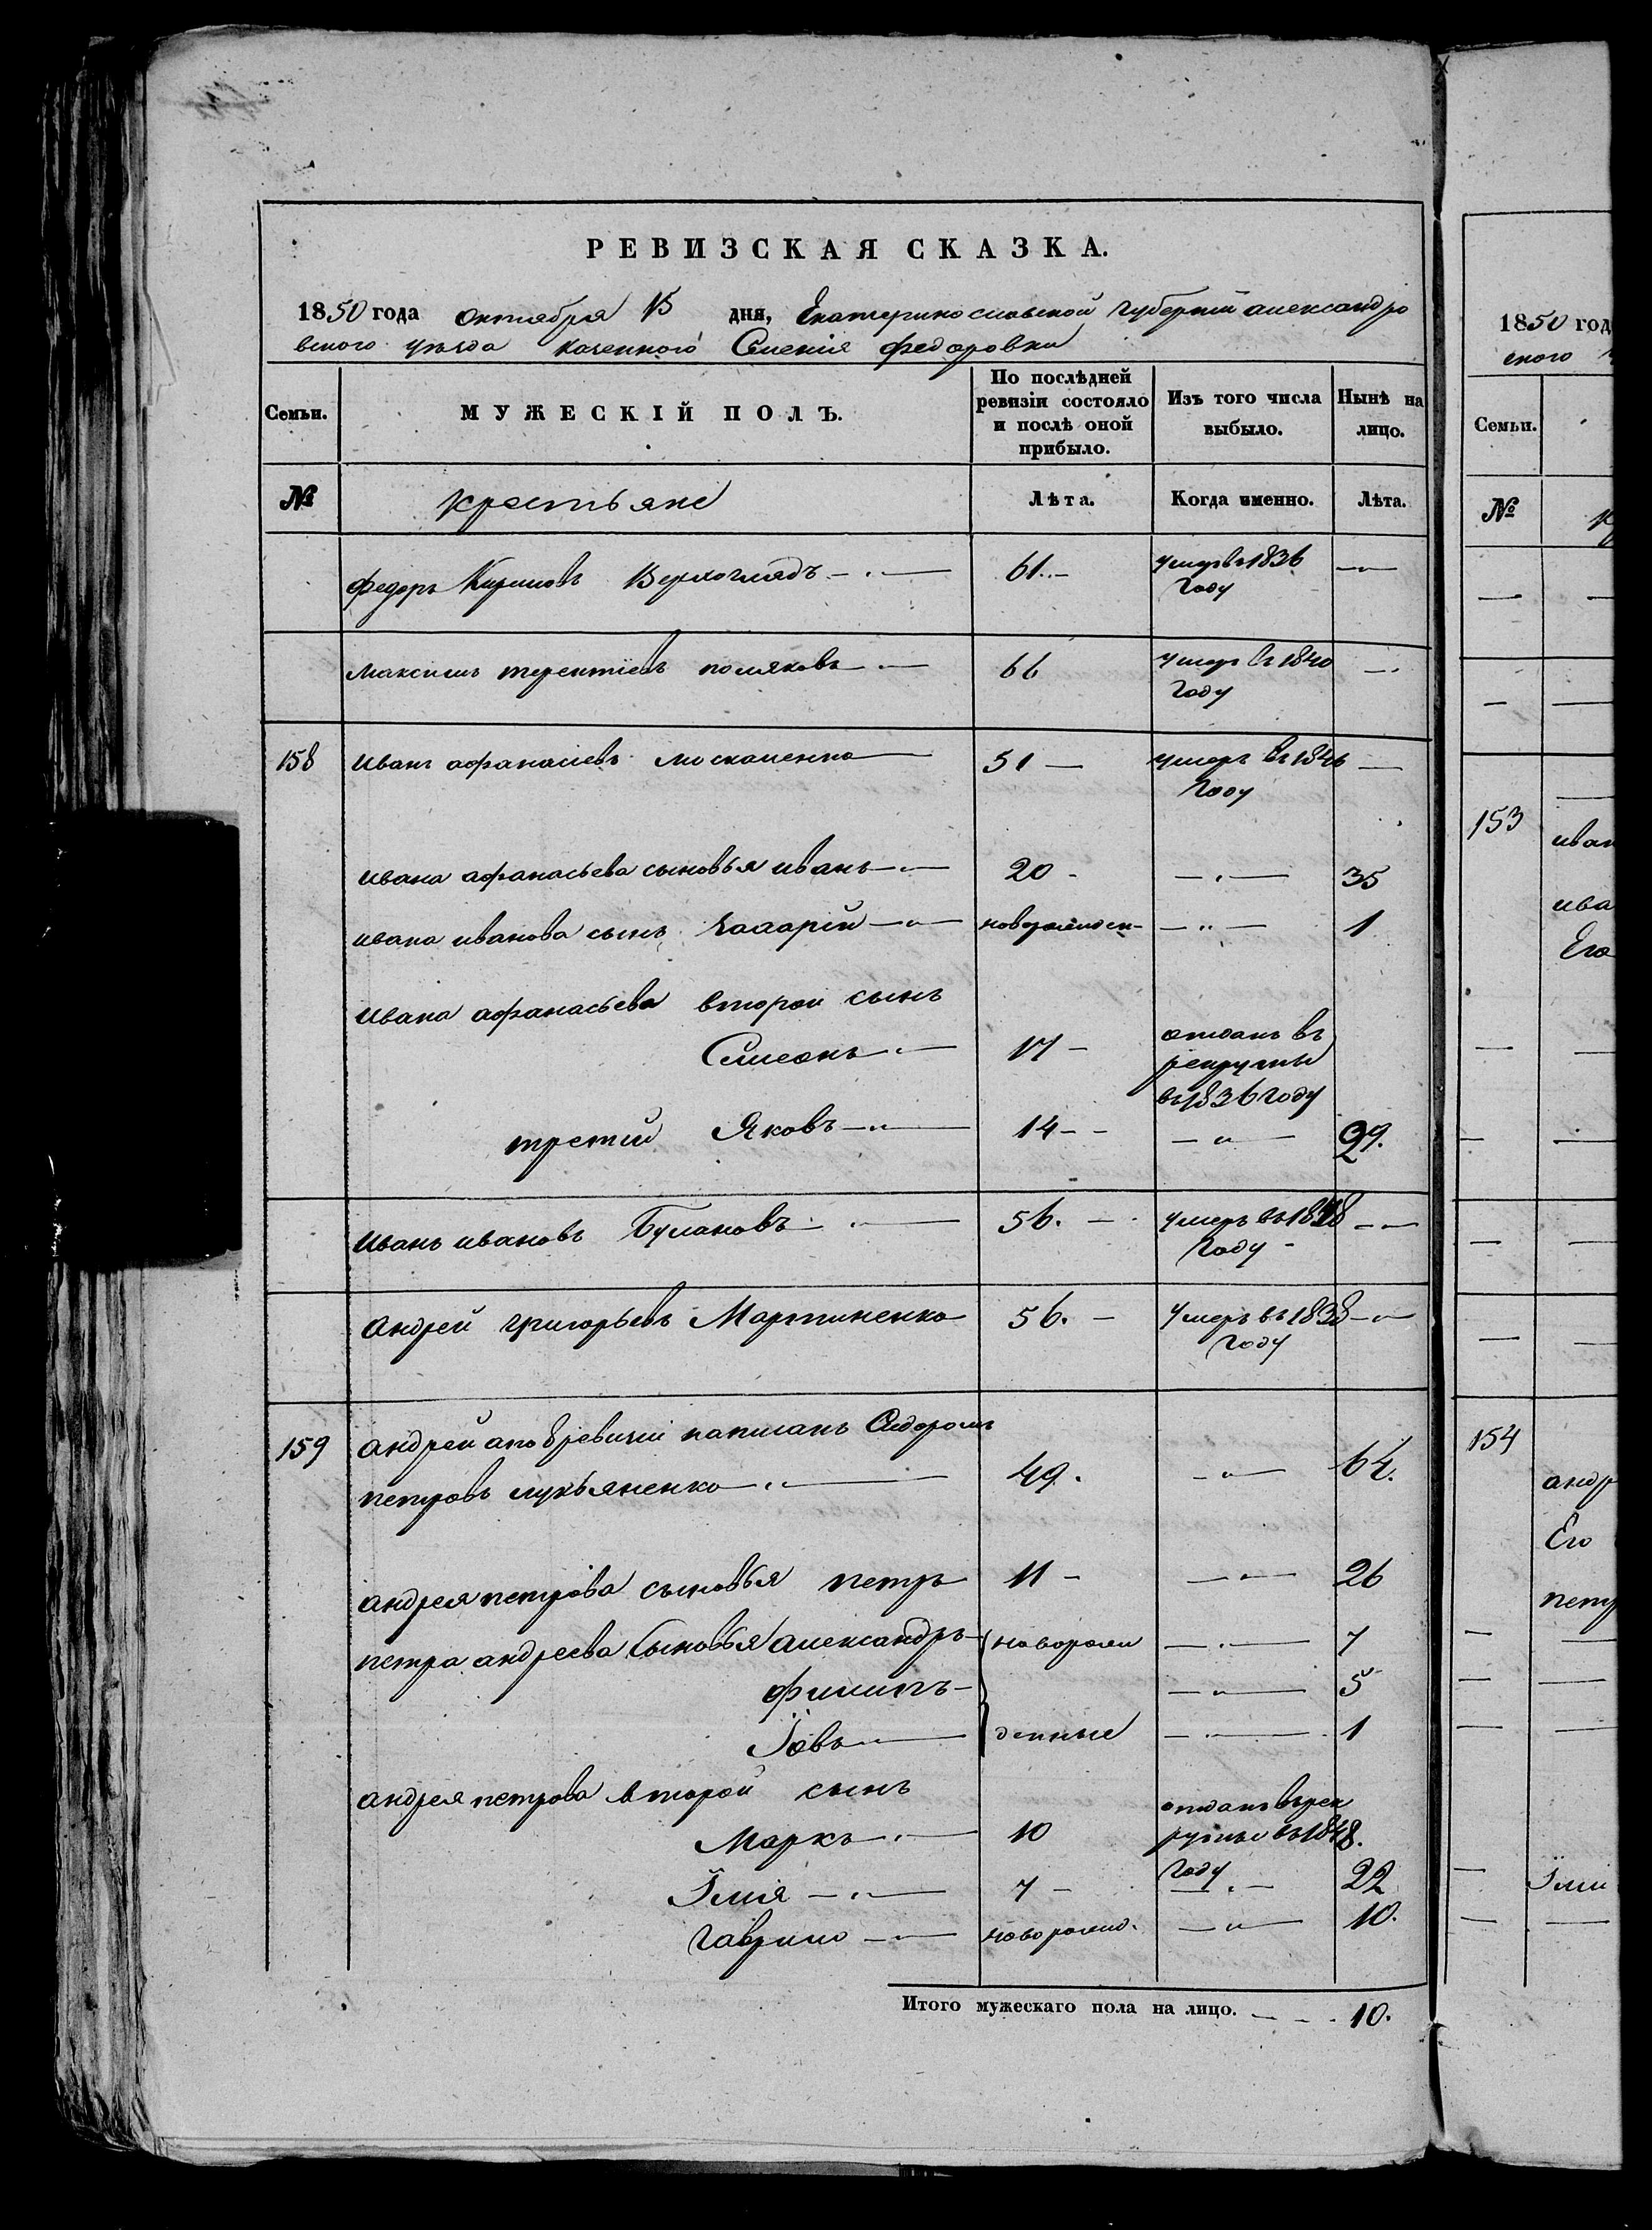 РЕВИЗСКАЯ СКАЗКА.
1850 года октября 15 дня, Екатеринославской губернии александро
вского уезда казенного Селения федоровки
Семьи.
МУЖЕСКІЙ ПОЛЪ.
По послѣдней ревизіи состояло и послѣ оной прибыло.
Изъ того числа выбыло.
Нынѣ на лицо.
№ крестьяне Лѣта. Когда именно. Лѣта.
федоръ Кириловъ Верхоглядъ 61 умеръ в 1836
Году
Максимъ терентіевъ поляковъ 66 умеръ въ 1840
Году
158 Иванъ афанасіевъ москаленко 51 умеръ въ 1846
Году
Ивана афанасьева сыновья иванъ 20 35
ивана иванова сынъ Захарій новорожден 1
Ивана афанасьева второй сынъ
Симеонъ 17 отданъ въ
рекруты
въ 1836 году
третий Яковъ 14 29.
Иванъ ивановъ Булановъ 56. умеръ въ
Году
Андрей григорьевъ Мартиненко 56. умеръ въ 1838
Году
159 андрей а по 8 ревизіи написанъ Сидоромъ
петровъ лукьяненко 49. 64.
андрея петрова сыновья петръ 11 26
петра андреева сыновья александръ новорож 7
филипъ 5
Іовъ денные 1
андрея петрова второй сынъ
Маркъ 10 отданъ въ рек
руты въ 1848.
Году
Ілія 7 22
Гаврило новорожд. 10.
Итого мужескаго пола на лицо. 10.
1850 год
ского
Семьи.
№
153 иван
ива
Его
154
андр
Его
петр
Ілі